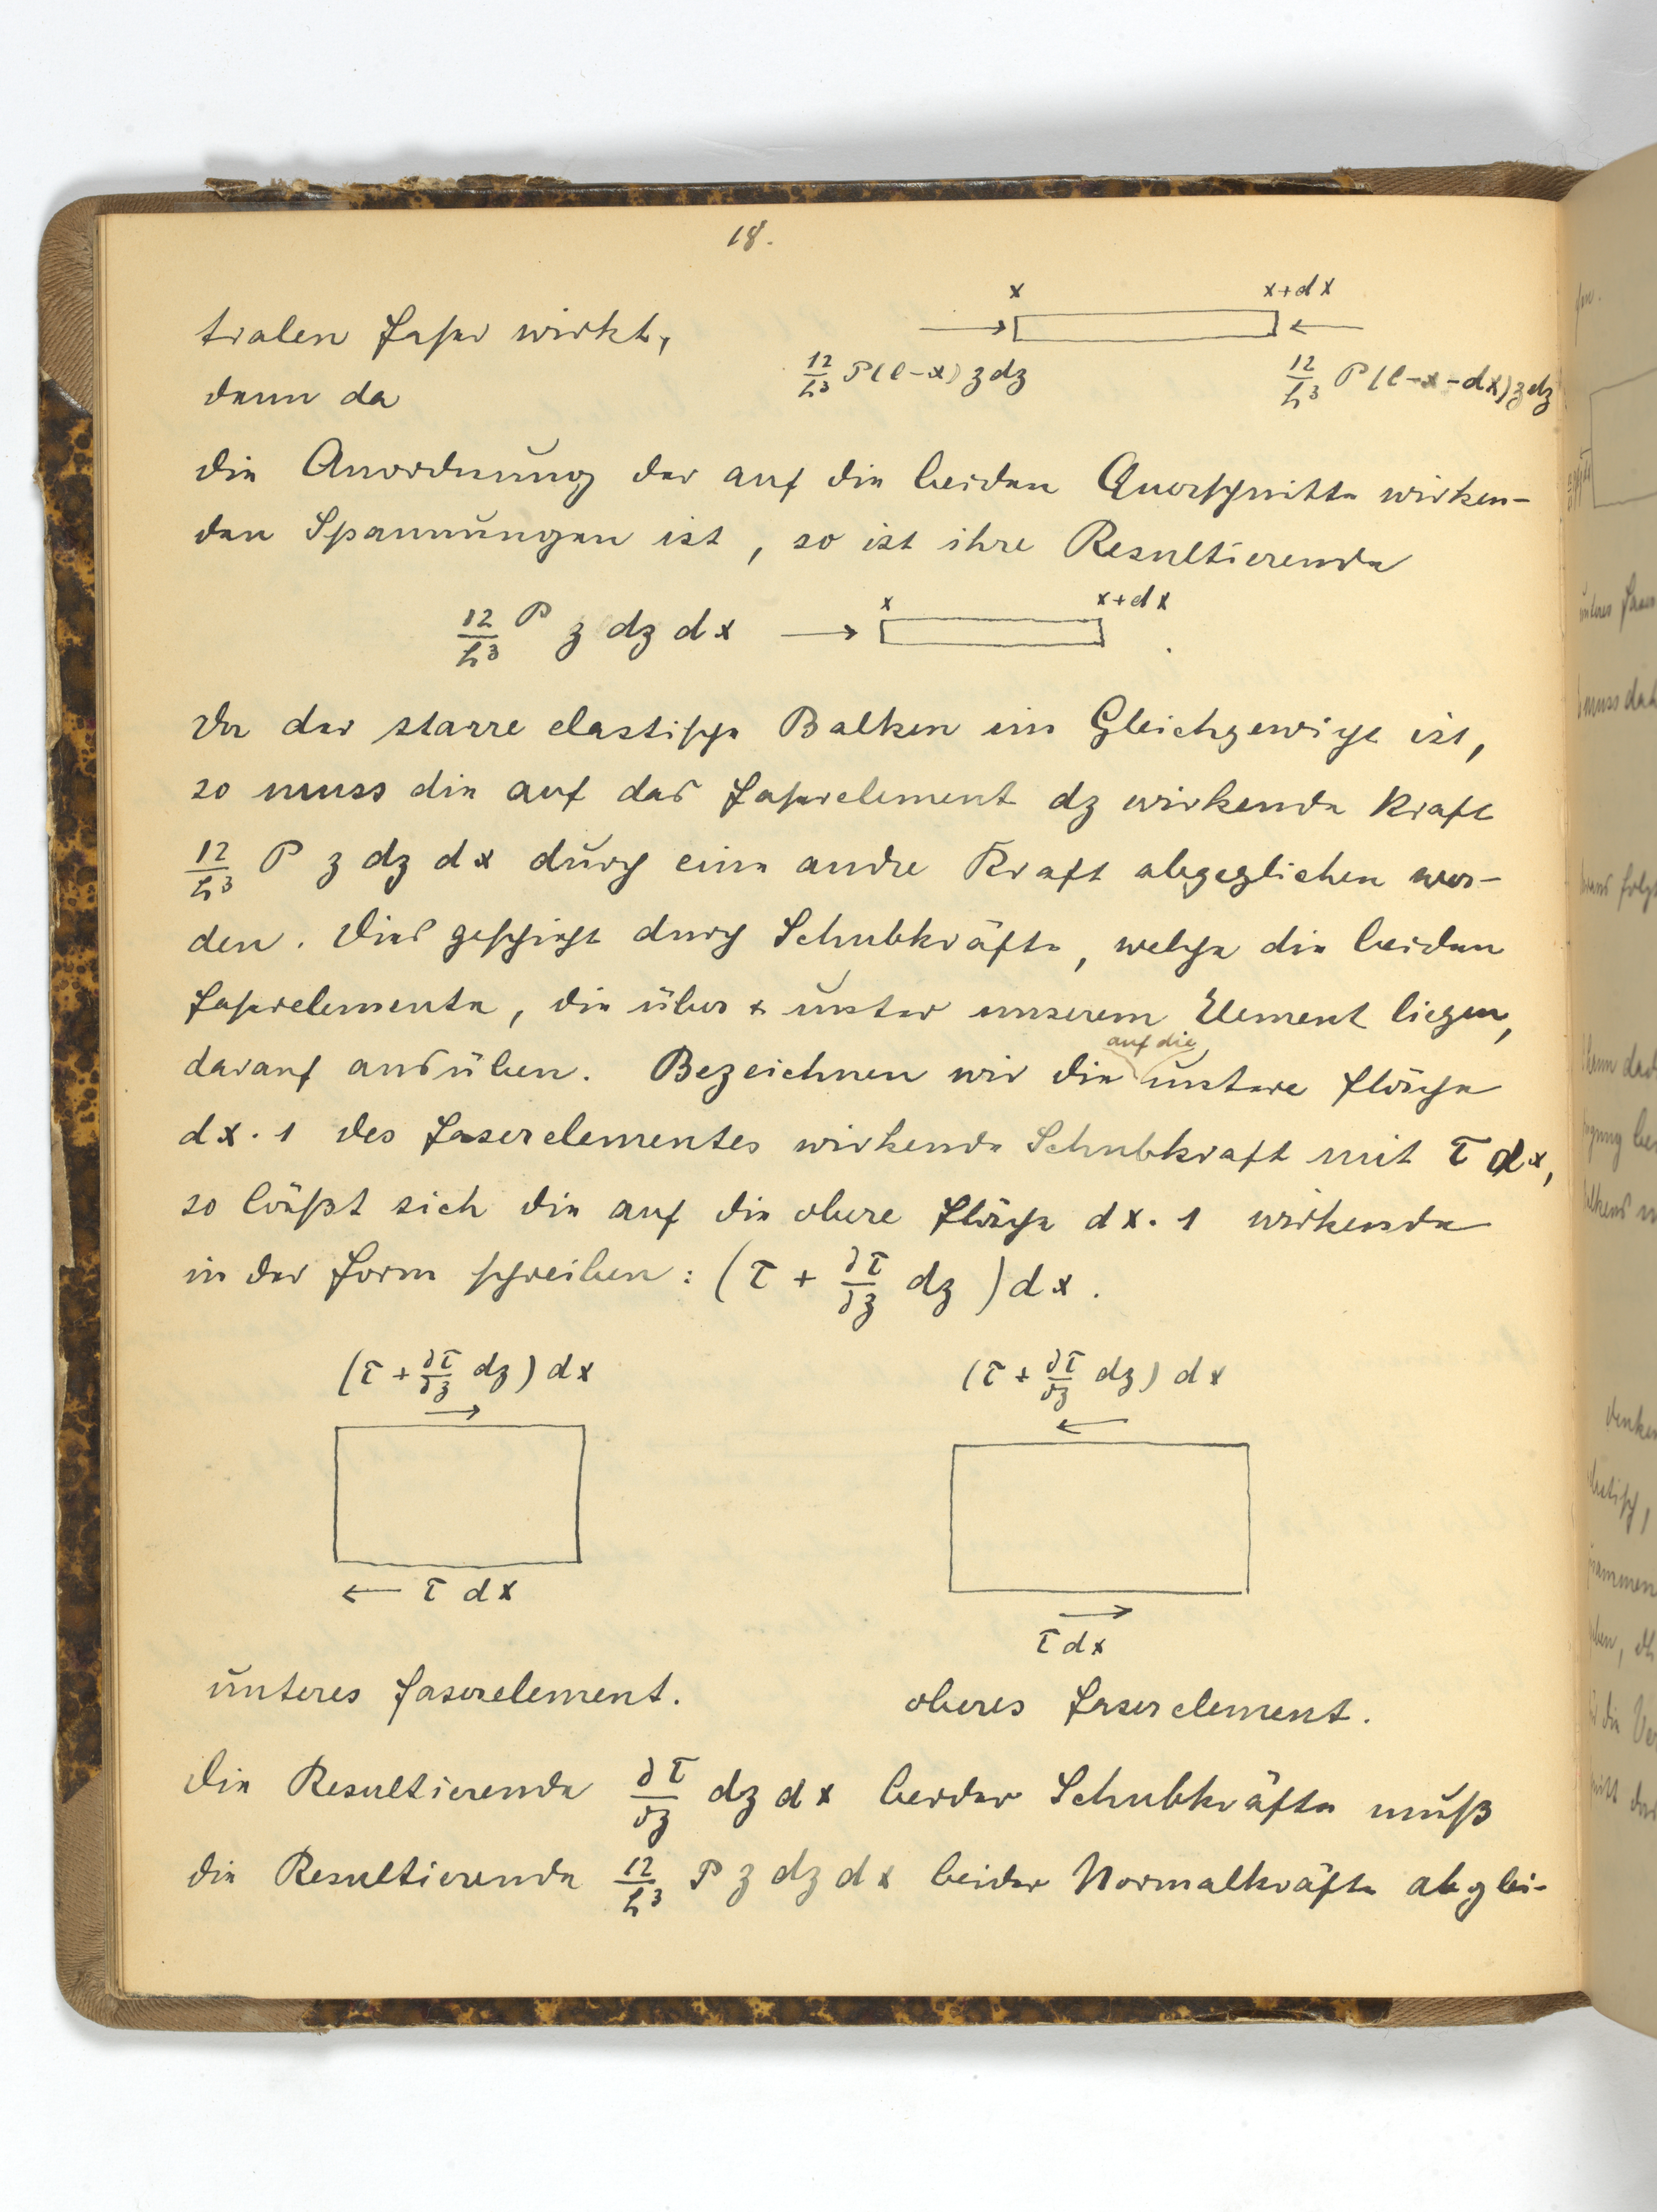 18.
x x+dx
tralen Faser wirkt,
12/h³ P(l-x) z dz 12/h³ P(l-x-dx) z dz
denn da
die Anordnung der auf die beiden Querschnitte wirken-
den Spannungen ist, so ist ihre Resultierende
x x+dx
12/h³ P z dz dx
Da der starre elastische Balken im Gleichgewicht ist,
so muss die auf das Faserelement dz wirkende Kraft
12/h³ P z dz dx durch eine andre Kraft abgeglichen wer-
den. Dies geschieht durch Schubkräfte, welche die beiden
Faserelemente, die über & unter unserem Element liegen,
auf die
darauf ausüben. Bezeichnen wir die untere Fläche
dx·1 des Faserelementes wirkende Schubkraft mit τ dx,
so läßt sich die auf die obere Fläche dx·1 wirkende
in der Form schreiben: (τ + ∂τ/∂z dz) dx.
(τ + ∂τ/∂z dz) dx (τ + ∂τ/∂z dz) dx
τ dx
τ dx
unteres Faserelement. oberes Faserelement.
Die Resultierende ∂τ/∂z dz dx beider Schubkräfte muß
die Resultierende 12/h³ P z dz dx beider Normalkräfte abglei-